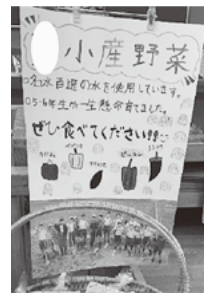 小産野菜
名水百選の水を使用しています。
○5・6年生が一生懸命育てました。
ぜひ食べてください!!!
ピーマン